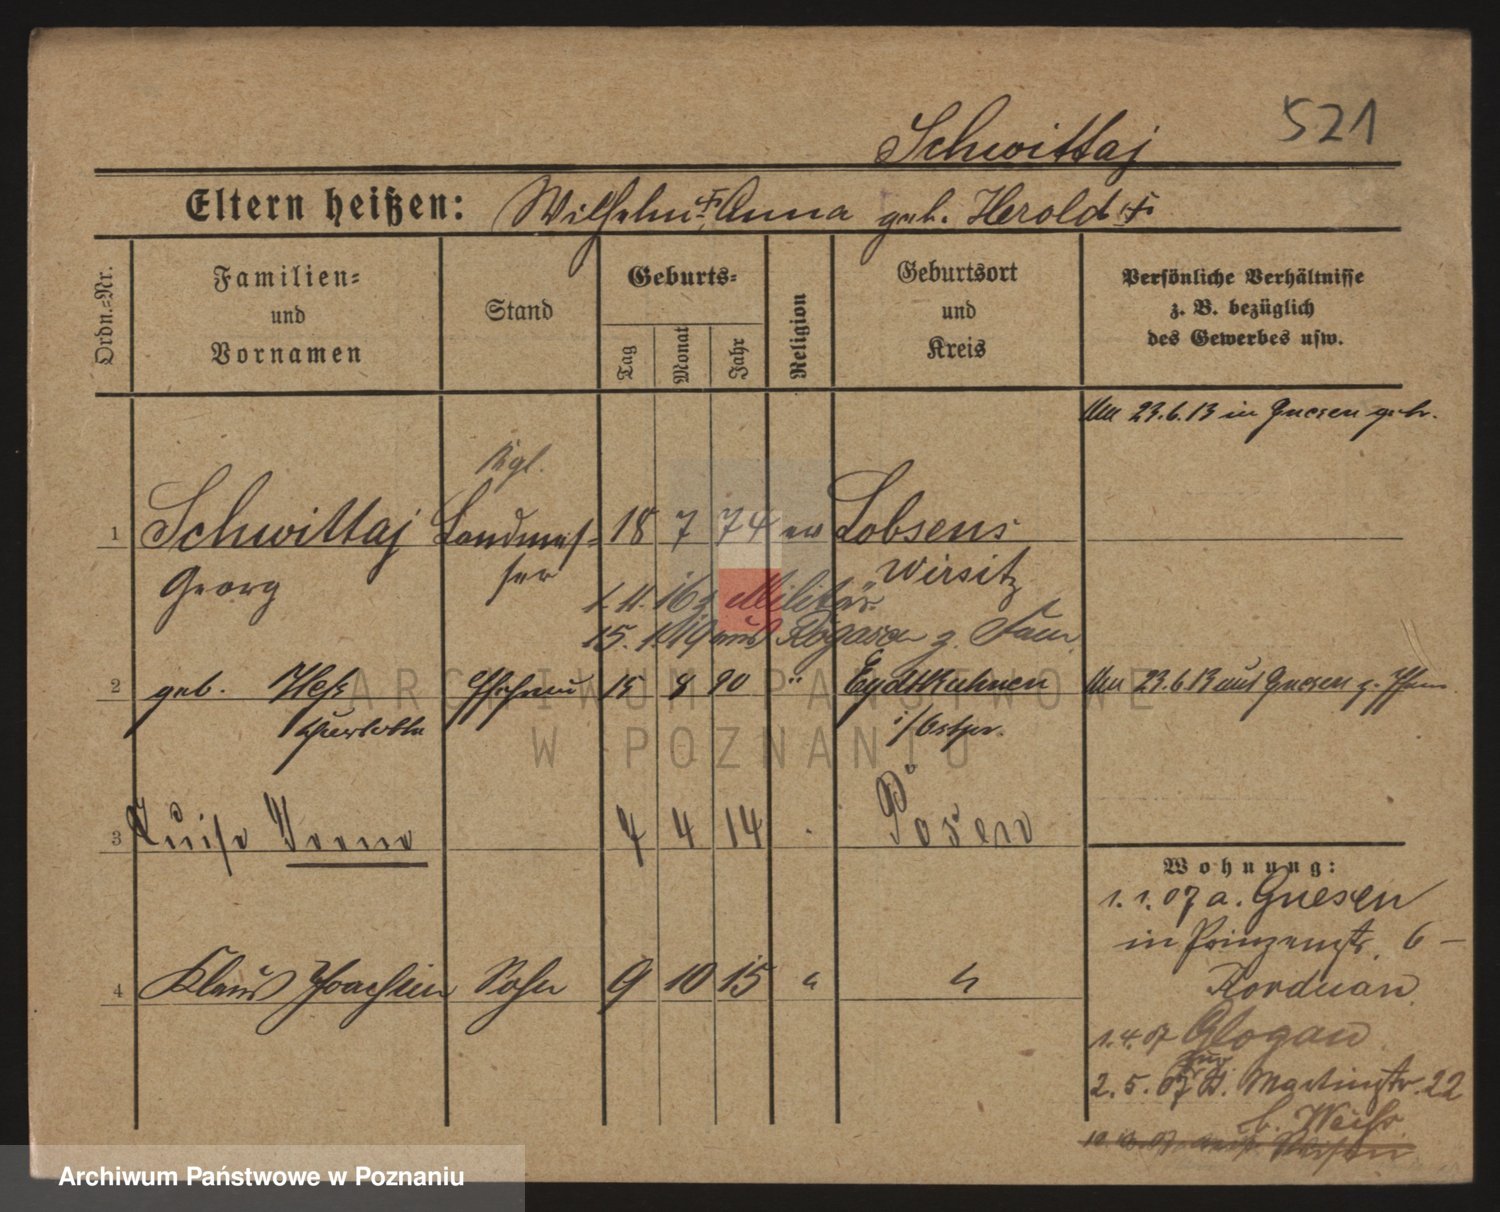 521
Schwittaj
Eltern heißen: Wilhelm † Anna geb. Herold †
Ordn.-Nr.
Familien-
und
Vornamen
Stand
Geburts-
Tag
Monat
Jahr
Religion
Geburtsort
und
Kreis
Persönliche Verhältnisse
z. B. bezüglich
des Gewerbes usw.
23.6.13 in Gnesen
Kgl.
1 Schwittaj Landmes- 18 7 74 ev Lobsens
Georg ser Wirsitz
1.11.16 z Militär
15.1.19 aus
2 geb. Heß Ehefrau 15 8 90 " Eydtkuhnen 23.6.13 aus Gnesen z.
i/Ostpr.
3 Luise 4 4 14 Posen
4 Klaus Joachim Sohn 9 10 15 " "
Wohnung:
1.1.07 a. Gnesen
in Prinzenstr. 6 -
Korduan
1.4.07 Glogau
2.5.07 Martinstr. 22
b. Weiß
ARCHIWUM PAŃSTWOWE
W POZNANIU
Archiwum Państwowe w Poznaniu